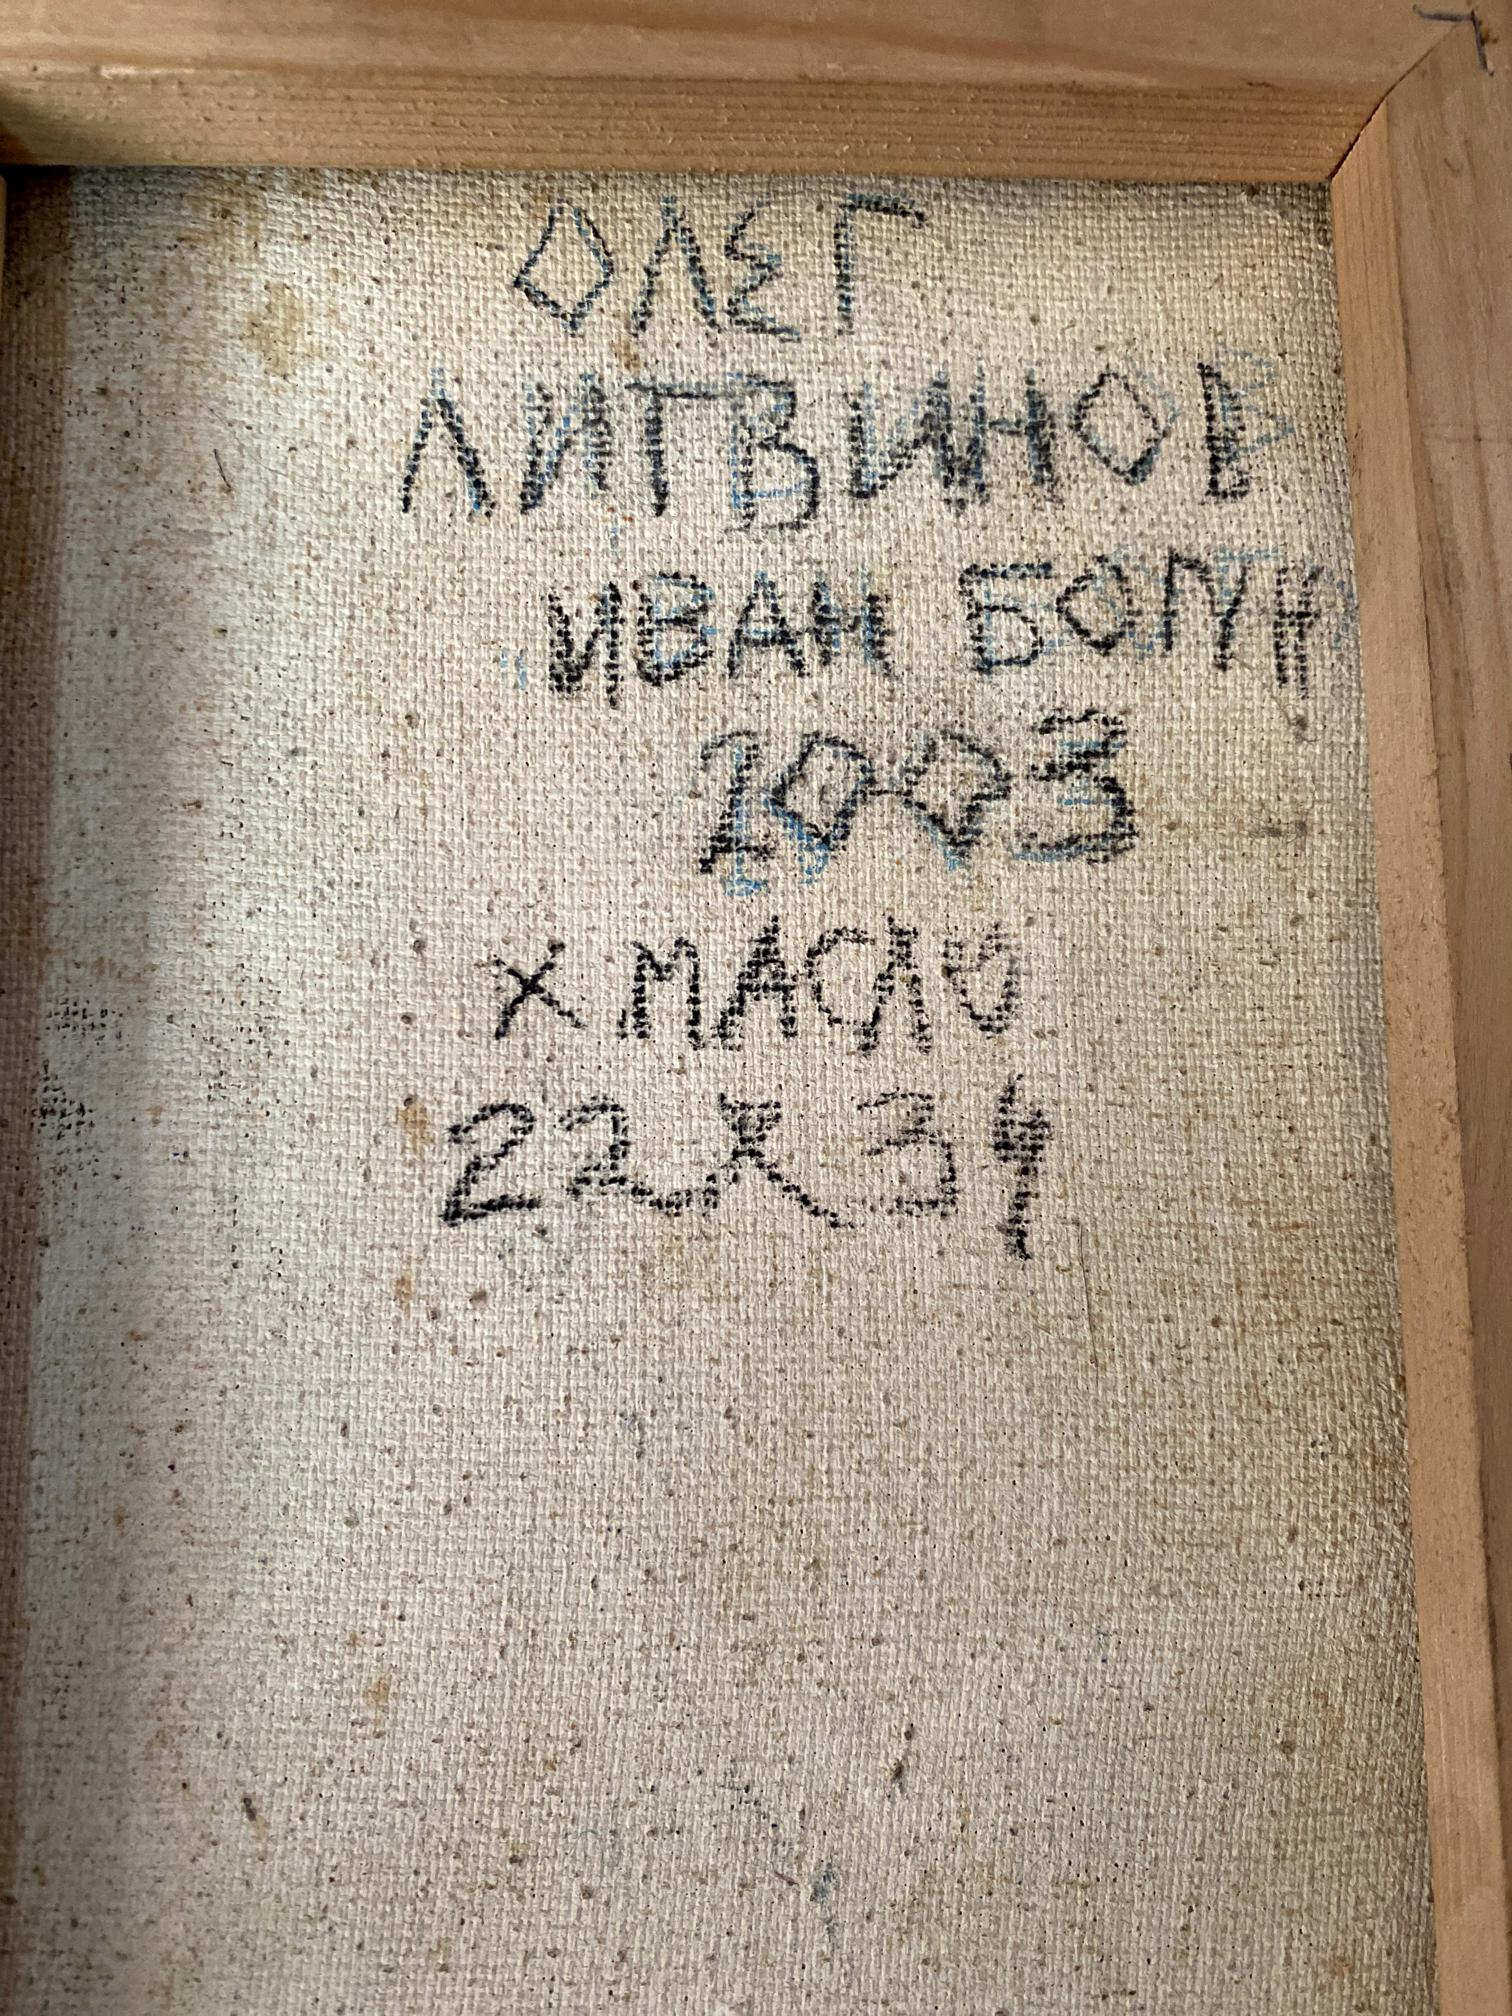 ОЛЕГ
ЛИТВИНОВ
ИВАН
2003
Х МАСЛО
22 Х 34